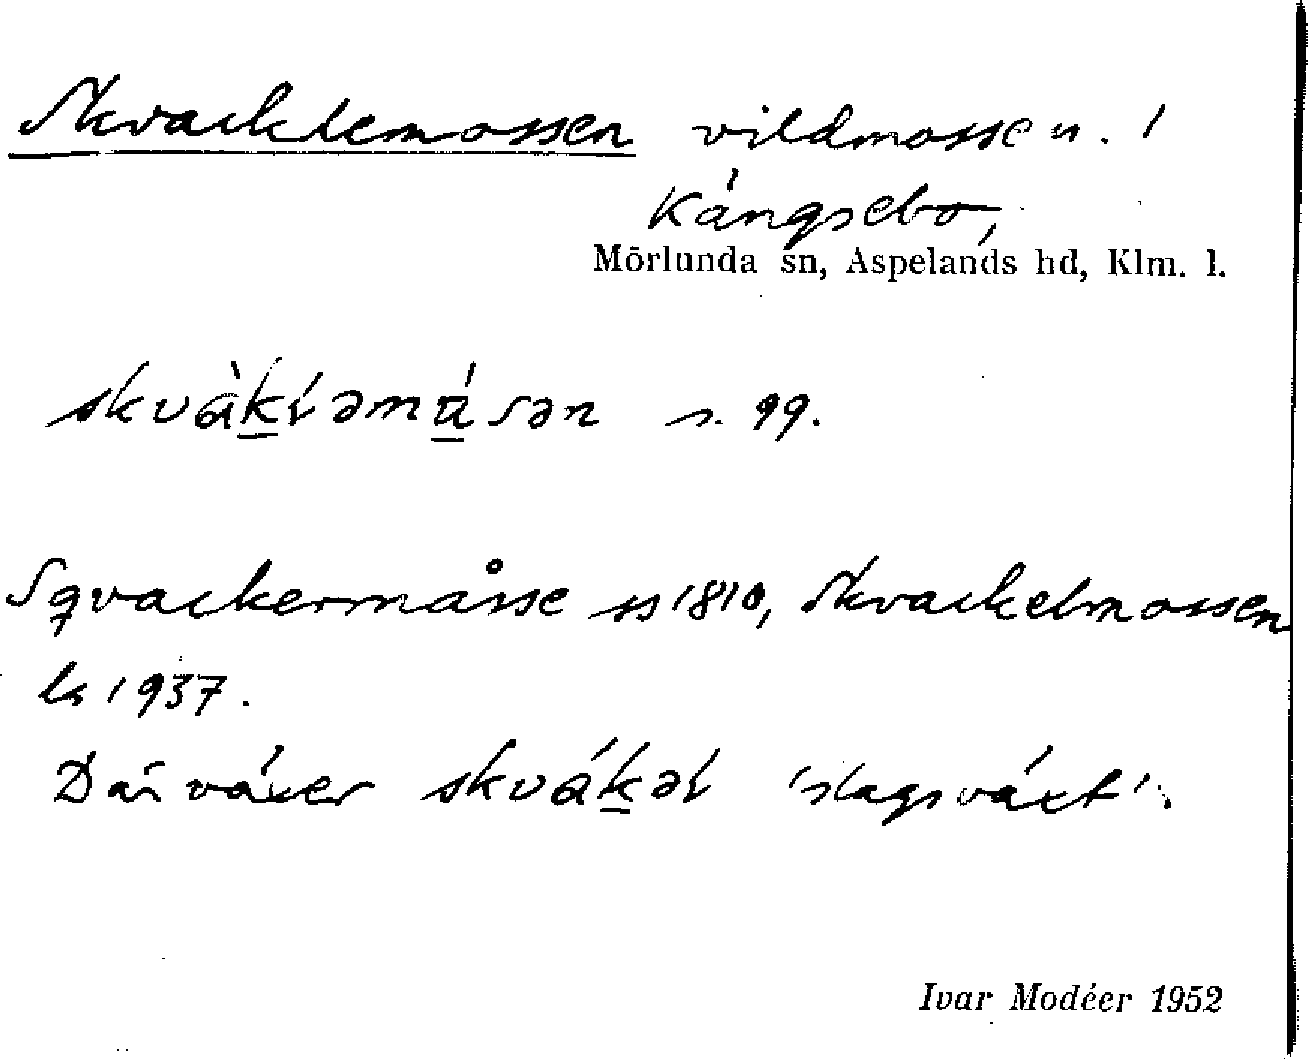 Skvacklemossen vildmosse u. 1
Kängsebo,
Mörlunda sn, Aspelands hd, Klm. l.
skvàk̲ləmú̲sən s. 99.
Sqvackermåsse ss 1810, Skvackelmossen
ls 1937.
Där växer skvák̲əl 'slags växt'.
Ivar Modéer 1952